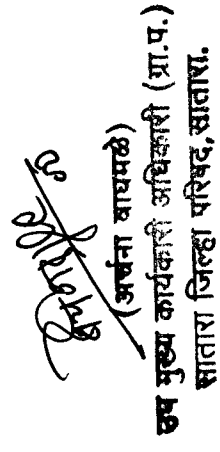 (अर्चना वाघमळे)
उप मुख्य कार्यकारी अधिकारी (ग्रा.प.)
सातारा जिल्हा परिषद, सातारा.